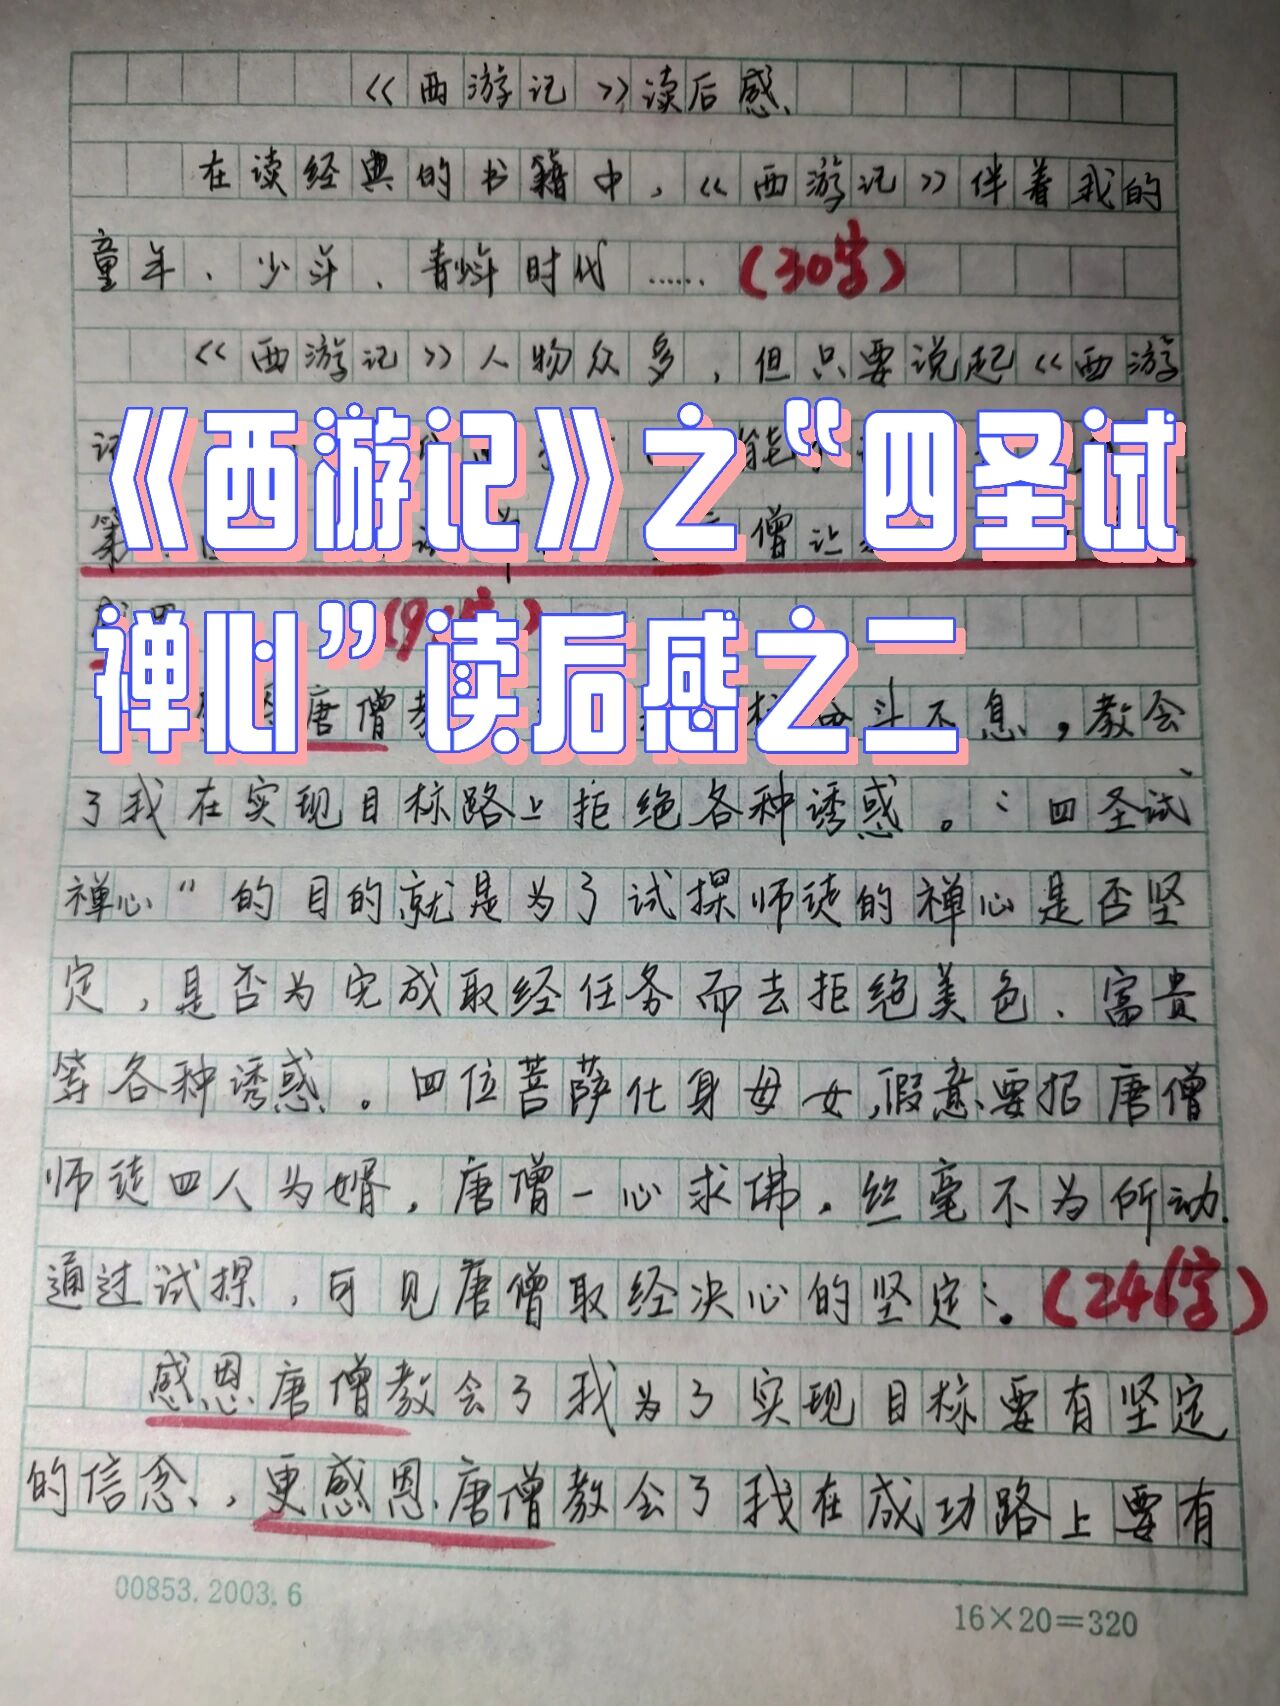 《西游记》读后感
在读经典的书籍中，《西游记》伴着我的
童年、少年、青少年时代……（30字）
《西游记》人物众多，但只要说起《西游
《西游记》之“四圣试
僧让
禅心”读后感之二
唐僧
不息，教会
了我在实现目标路上拒绝各种诱惑。“四圣试
禅心”的目的就是为了试探师徒的禅心是否坚
定，是否为完成取经任务而去拒绝美色、富贵
等各种诱惑。四位菩萨化身母女，假意要招唐僧
师徒四人为婿，唐僧一心求佛，丝毫不为所动.
通过试探，可见唐僧取经决心的坚定。（246字）
感恩唐僧教会了我为了实现目标要有坚定
的信念，更感恩唐僧教会了我在成功路上要有
00853.2003.6
16×20=320